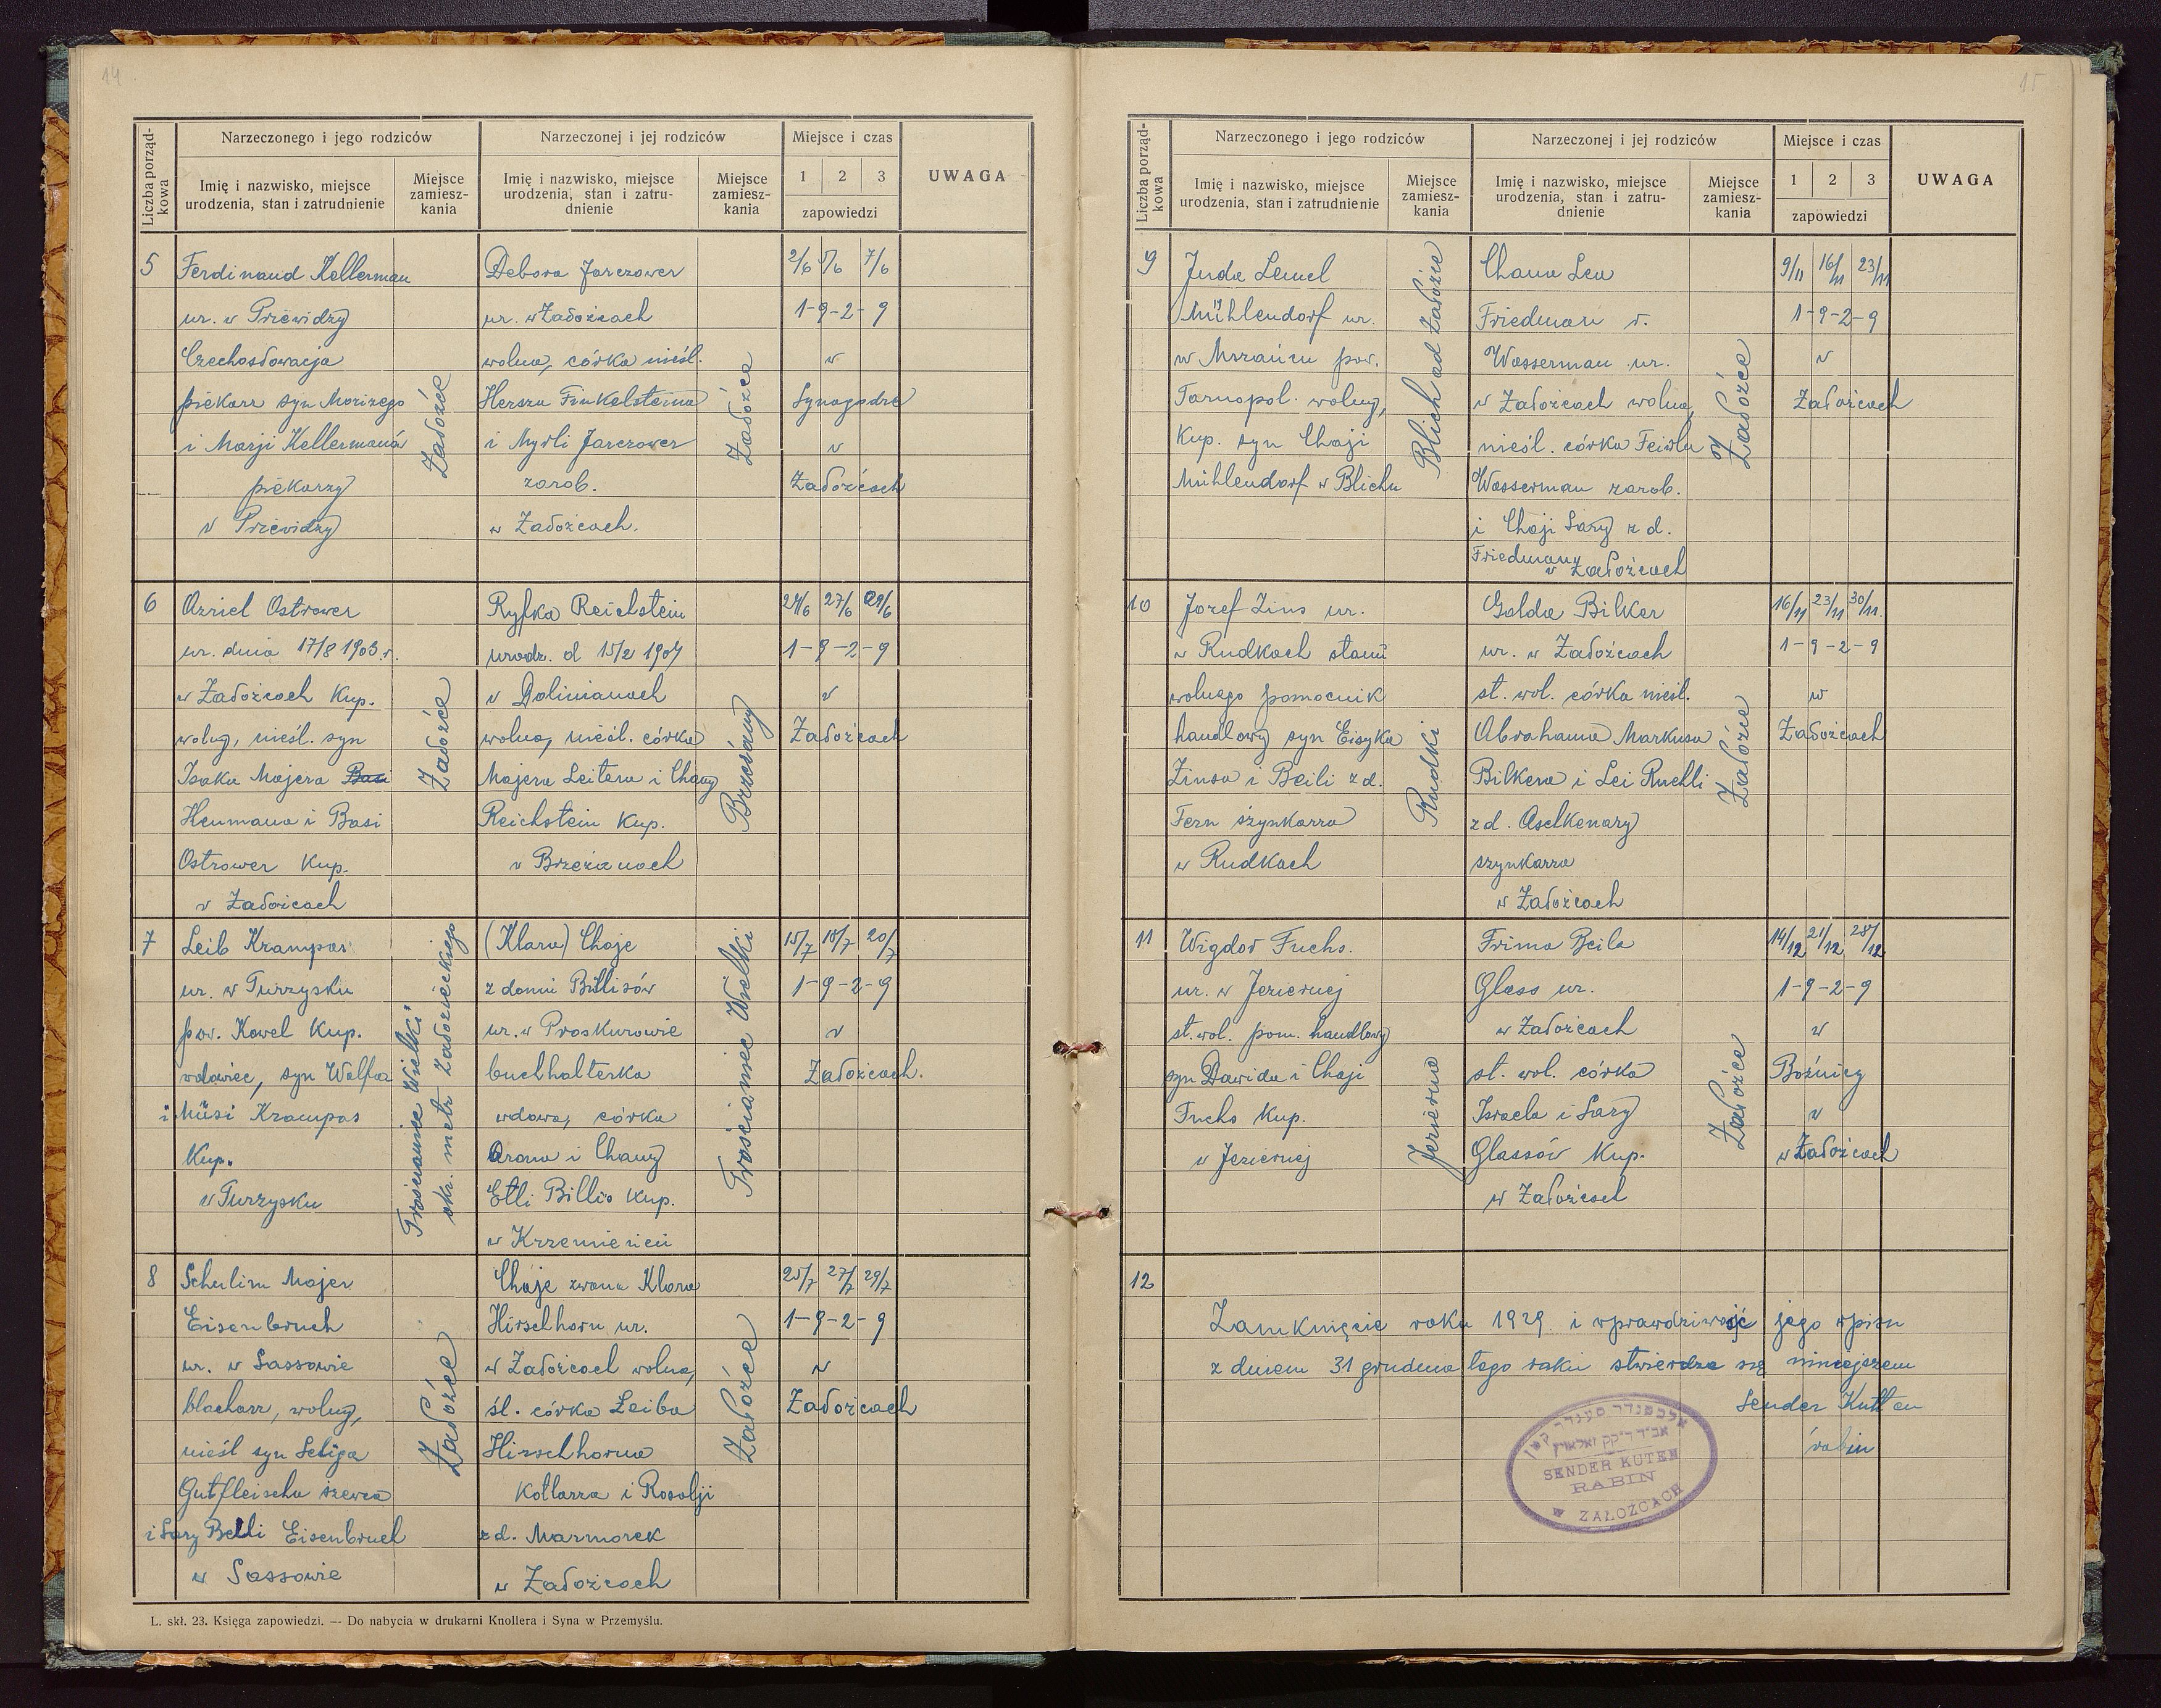 14
Liczba porząd-
kowa
Narzeczonego i jego rodziców
Narzeczonej i jej rodziców
Miejsce i czas
UWAGA
Imię i nazwisko, miejsce
urodzenia, stan i zatrudnienie
Miejsce
zamiesz-
kania
Imię i nazwisko, miejsce
urodzenia, stan i zatru-
dnienie
Miejsce
zamiesz-
kania
1 2 3
zapowiedzi
5
Ferdinand Kellerman
ur. w Priewidzy
Czechosłowacja
piekarz syn Morizego
i Marji Kellermana
piekarzy
w Priewidzy
Załoźce
Debora Jarczower
ur. w Załoźcach
wolna, córka nieśl.
Hersza Finkelsteina
i Myrli Jarczower
zarob.
w Załoźcach.
Załoźce
2/6 5/6 7/6
1-9-2-9
w
Synagodze
w
Załoźcach
6
Azriel Ostrower
ur. dnia 17/8 1903 r.
w Załoźcach Kup.
wolny, nieśl. syn
Isaka Majera Basi
Heumana i Basi
Ostrower Kup.
w Załoźcach
Załoźce
Ryfka Reichstein
urodz. d 15/2 1907
w Dolinianach
wolna, nieśl. córka
Majera Leitera i Chany
Reichstein Kup.
w Brzeżanach
Brzeżany
24/6 27/6 29/6
1-9-2-9
w
Załoźcach
7
Leib Krampas
ur. w Turzysku
pow. Kowel Kup.
wdowiec, syn Wolfa
i Müsi Krampas
Kup.
w Turzysku
Trościaniec Wielki
okr. metr. Załozieckiego
(Klara) Chaje
z domu Billisów
ur. w Proskurowie
buchhalterka
wdowa, córka
Arona i Chany
Etli Billis Kup.
w Krzemieńcu
Trościaniec Wielki
15/7 18/7 20/7
1-9-2-9
w
Załoźcach.
8
Schulim Majer
Eisenbruch
ur. w Sassowie
blacharz, wolny,
nieśl syn Seliga
Gutfleischa szewca
i Sary Belli Eisenbruch
w Sassowie
Załoźce
Chaje zwana Klara
Hirschhorn ur.
w Załoźcach wolna,
śl. córka Leiba
Hirschhorna
Kotlarza i Rosalji
z d. Marmorek
w Załoźcach
Załoźce
25/7 27/7 29/7
1-9-2-9
w
Załoźcach
L. skł. 23. Księga zapowiedzi. — Do nabycia w drukarni Knollera i Syna w Przemyślu.
15
Liczba porząd-
kowa
Narzeczonego i jego rodziców
Narzeczonej i jej rodziców
Miejsce i czas
UWAGA
Imię i nazwisko, miejsce
urodzenia, stan i zatrudnienie
Miejsce
zamiesz-
kania
Imię i nazwisko, miejsce
urodzenia, stan i zatru-
dnienie
Miejsce
zamiesz-
kania
1 2 3
zapowiedzi
9
Juda Lemel
Mühlendorf ur.
w Mszańcu pow.
Tarnopol. wolny,
Kup. syn Chaji
Mühlendorf w Blichu
Blich ad Załoźce
Chana Lea
Friedman r.
Wasserman ur.
w Załoźcach wolna,
nieśl. córka Feiwla
Wasserman zarob.
i Chaji Sary z d.
Friedmany
w Załoźcach
Załoźce
9/11 16/11 23/11
1-9-2-9
w
Załoźcach
10
Jozef Zins ur.
w Rudkach stanu
wolnego pomocnik
handlowy syn Eisyka
Zinsa i Beili z d.
Fern szynkarza
w Rudkach
Rudki
Golda Bilker
ur. w Załoźcach
st. wol. córka nieśl.
Abrahama Markusa
Bilkera i Lei Ruchli
z d. Aselkenazy
szynkarza
w Załoźcach
Załoźce
16/11 23/11 30/11.
1-9-2-9
w
Załoźcach
11
Wigdor Fuchs.
ur. w Jeziernej
st. wol. pom. handlowy
syn Dawida i Chaji
Fuchs Kup.
w Jeziernej
Jezierna
Frima Beila
Glass ur.
w Załoźcach
st. wol. córka
Israela i Sary
Glassów Kup.
w Załoźcach
Załoźce
14/12 21/12 28/12
1-9-2-9
w
Bożnicy
w
w Załoźcach
12
Zamknięcie roku 1929 i wprawdziwość jego wpisu
z dniem 31 grudnia tego roku stwierdza się niniejszem
Sender Kutten
rabin
SENDER KUTEN
RABIN
W ZAŁOŹCACH